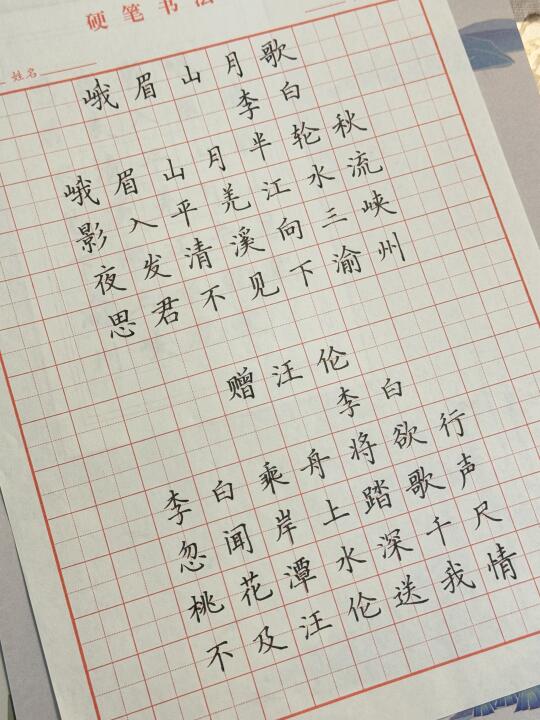 硬笔书法
姓名
峨眉山月歌
李白
峨眉山月半轮秋
影入平羌江水流
夜发清溪向三峡
思君不见下渝州
赠汪伦
李白
李白乘舟将欲行
忽闻岸上踏歌声
桃花潭水深千尺
不及汪伦送我情